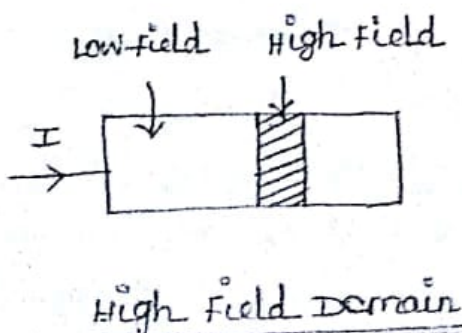 Low field High Field
I
High Field Domain